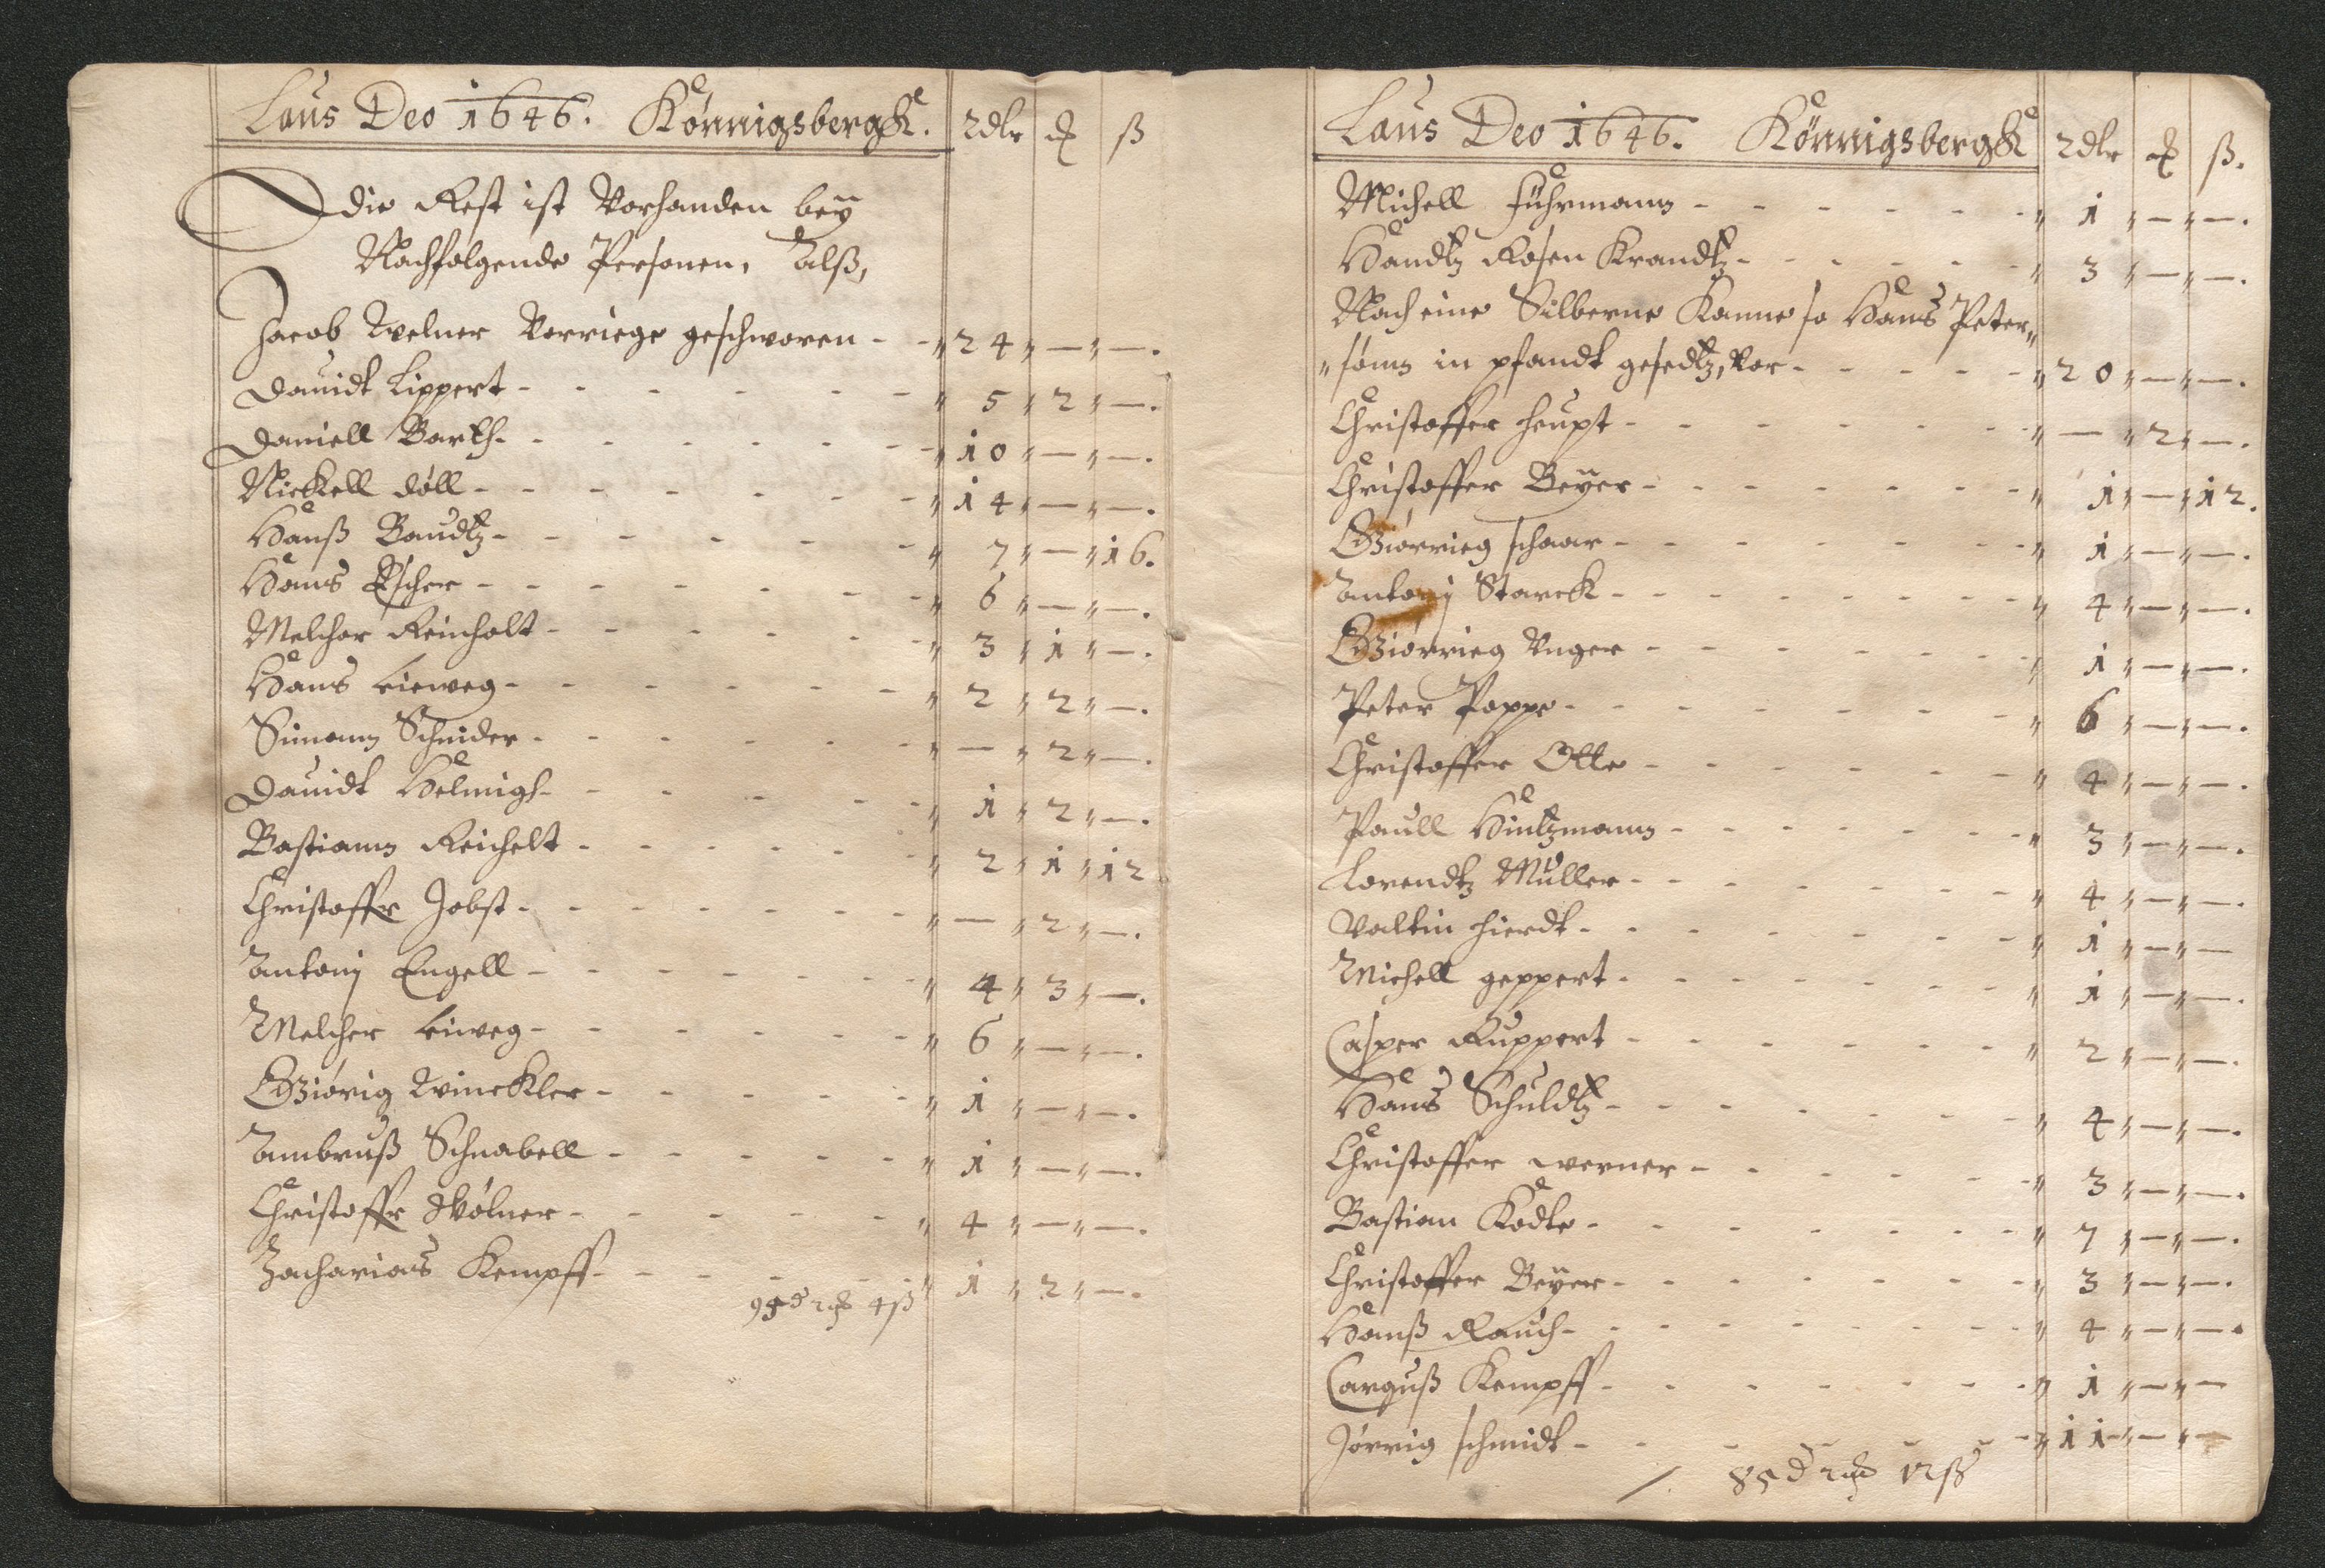 Laus Deo 1646. Könnigsbergk. Rdlr ß
Die Rest ist Vorhanden bey
Nachfolgende Personen, Alß,
Jacob Welner Vorriege geschworen - - " 24 " — " —.
Dauidt Lippert - - - - - " 5 " 2 " —.
Daniell Barth - - - - - " 10 " — " —.
Nickell Döll - - - - - " 14 " — " —.
Hanß Baudtz - - - - - " 7 " — " 16.
Hans Escher - - - - - " 6 " — " —.
Melcher Reinholt - - - - - " 3 " 1 " —.
Hans Lieweg - - - - - " 2 " 2 " —.
Simann Schnider - - - - - " — " 2 " —.
Dauidt Helmigh - - - - - " 1 " 2 " —.
Bastiann Reichelt - - - - - " 2 " 1 " 12
Christoffr Jobst - - - - - " — " 2 " —.
Antonj Engell - - - - - " 4 " 3 " —.
Melcher Liweg - - - - - " 6 " — " —.
Giörig Winckler - - - - - " 1 " — " —.
Ambruß Schnabell - - - - - " 1 " — " —.
Christoffr Wölner - - - - - " 4 " — " —.
Zacharias Kempff - - - - - " 1 " 2 " —.
4 ß
Laus Deo 1646. Könnigsbergk Rdlr ß.
Michell Führmann - - - - - " 1 " — " —.
Handtz Rosen Krandtz - - - - - " 3 " — " —.
Noch eine Silberne Kanne so Hans Peter"
"sonn in pfandt gesedtz, Vor - - - - - " 20 " — " —.
Christoffer Heupt - - - - - " — " 2 " —.
Christoffer Beyer - - - - - " 1 " — " 12.
Giörrieg schaar - - - - - " 1 " — " —.
Antonj Starck - - - - - " 4 " — " —.
Giörrieg Vnger - - - - - " 1 " — " —.
Peter Poppe - - - - - " 6 " — " —.
Christoffer Otte - - - - - " 4 " — " —.
Paull Hintzmann - - - - - " 3 " — " —.
Lorendtz Muller - - - - - " 4 " — " —.
Valtin Hierdt - - - - - " 1 " — " —
Michell geppert - - - - - " 1 " — " —.
Casper Ruppert - - - - - " 2 " — " —.
Hans Schuldtz - - - - - " 4 " — " —.
Christoffer werner - - - - - " 3 " — " —.
Bastian Kodte - - - - - " 7 " — " —.
Christoffer Beyer - - - - - " 3 " — " —.
Hanß Rauch - - - - - " 4 " — " —.
Carguß Kempff - - - - - " 1 " — " —
Jörrig schmidt - - - - - " 11 " — " —
85 12 ß